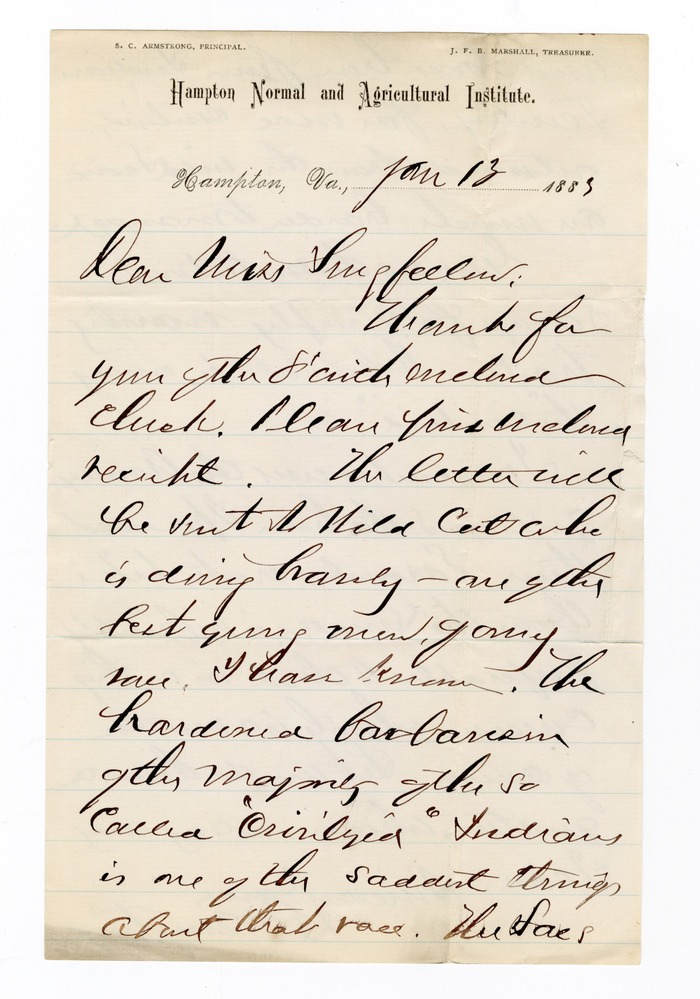 S. C. ARMSTRONG, PRINCIPAL.
J. F. B. MARSHALL, TREASURER.
Hampton Normal and Agricultural Institute.
Hampton, Va., Jan 13 1883
Dear Miss Longfellow:
Thanks for
your of the 8" with enclosed
check. Please find enclosed
receipt. The letter will
be sent to Wild Cat who
is doing bravely – one of the
best young men, of any
race, I have known. The
hardened barbarism
of the majority of the so
called "Civilized" Indians
is one of the saddest things
about that race. The Sacs